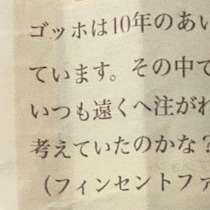 ゴッホは10年のあい
ています。その中で
いつも遠くへ注が
考えていたのかな?
(フィンセントファ